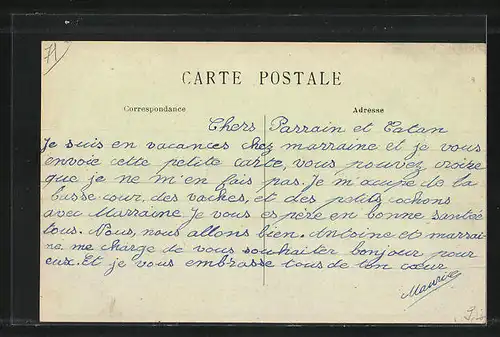 71
CARTE POSTALE
Correspondance
Adresse
Chers Parrain et Tatan
Je suis en vacances chez marraine et je vous
envoie cette petite carte, vous pouvez croire
que je ne m'en fais pas. Je m'occupe de la
basse cour, des vaches, et des petits cochons
avec Marraine. Je vous espère en bonne santée
tous. Nous, nous allons bien. Antoine et marrai
ne me charge de vous souhaiter bonjour pour
eux. Et je vous embrasse tous de ton cœur
Maurice